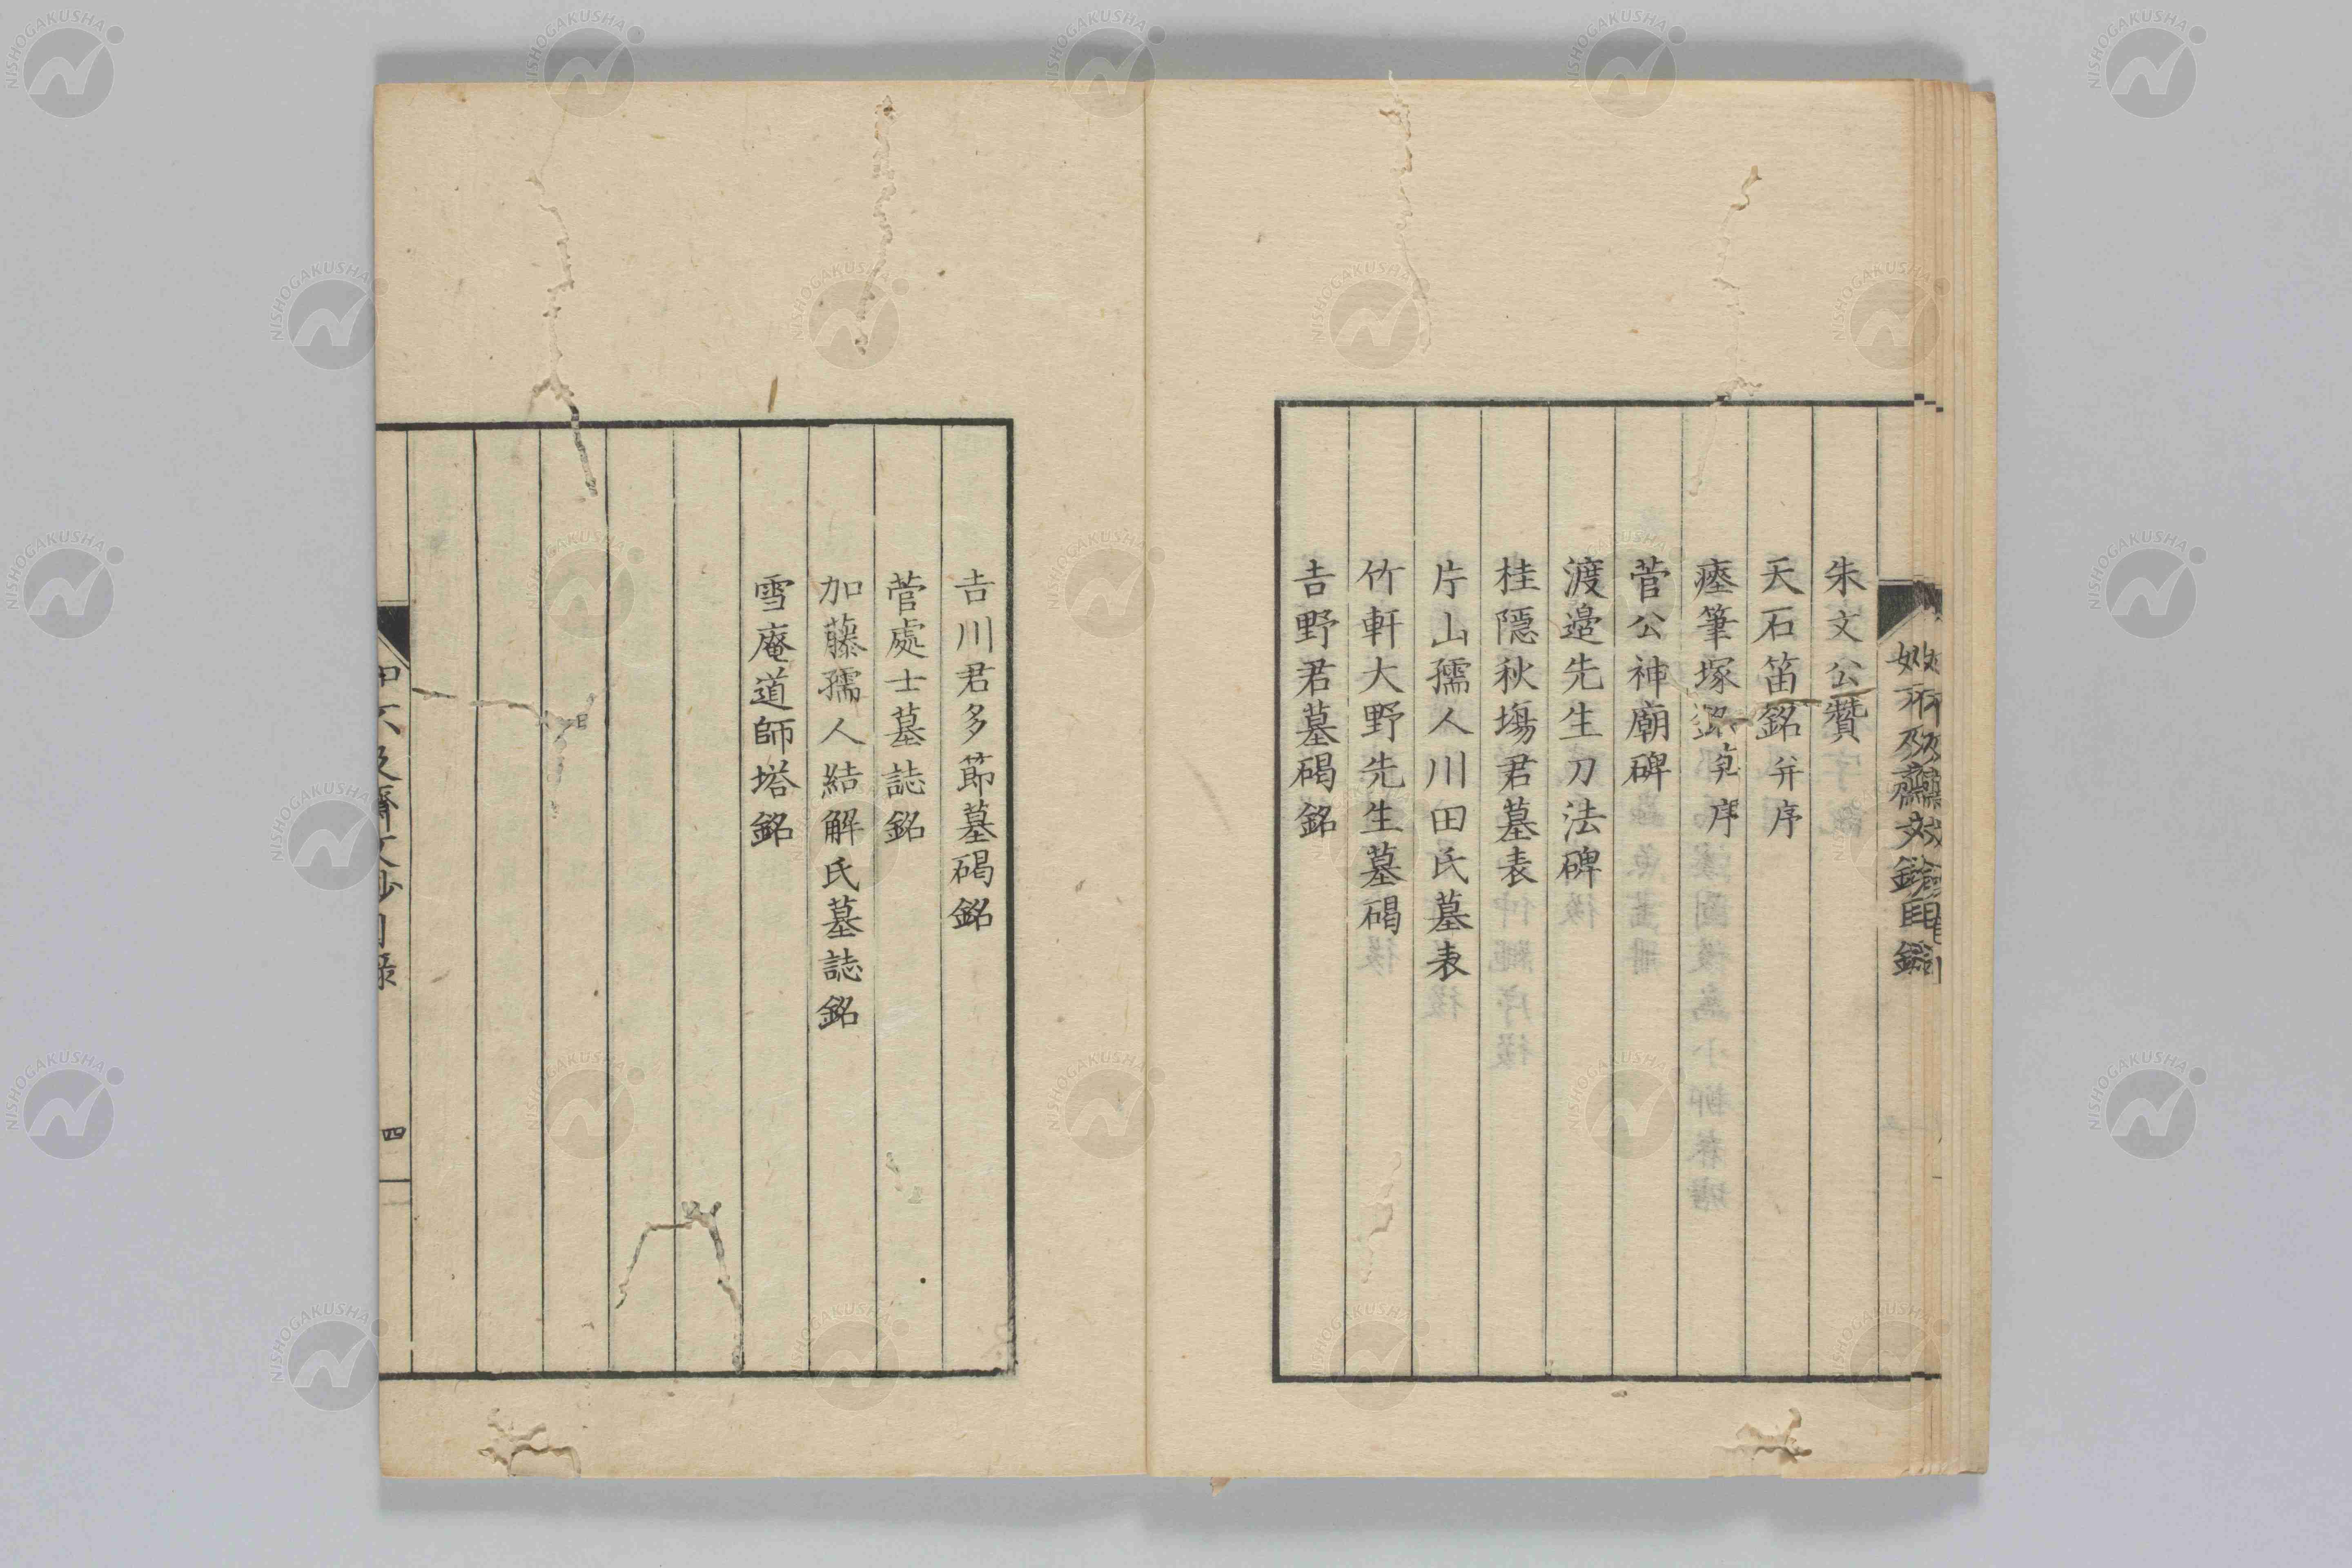 朱文公贊
天石笛銘并序
瘞筆塚銘并序
菅公神廟碑
渡邉先生刀法碑
桂隱秋塲君墓表
片山孺人川田氏墓表
竹軒大野先生墓碣
吉野君墓碣銘
吉川君多節墓碣銘
菅處士墓誌銘
加藤孺人結解氏墓誌銘
雪庵道師塔銘
四
NISHOGAKUSHA